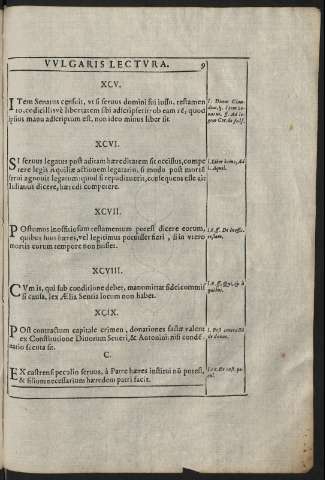 VVLGARIS LECTVRA. 9
XCV.
ITem Senatus censuit, vt si seruus domini sui iussu, testamen
to, codicillisve libertatem sibi adscripserit: ob eam rẽ, quod
ipsius manu adscriptum est, non ideo minus liber sit.
XCVI.
SI seruus legatus post aditam hæreditatem sit occisus, compe
tere legis Aquiliæ actionem legatario, si modo post mortẽ
serui agnouit legatum: quod si repudiauerit, consequens esse ait
Iulianus dicere, hæredi competere.
XCVII.
POstumus inofficiosum testamentum potest dicere eorum,
quibus suus hæres, vel legitimus potuisset fieri, si in vtero
mortis eorum tempore non fuisset.
XCVIII.
CVm is, qui sub conditione debet, manumittat fideicommis
si causa, lex Ælia Sentia locum non habet.
XCIX.
POst contractum capitale crimen, donationes factæ valent
ex Constitutione Diuorum Seueri, & Antonini: nisi condẽ
natio secuta sit.
C.
EX castrensi peculio seruus, à Patre hæres institui nõ potest,
& filium necessarium hæredem patri facit.
l. Post contractũ
de donat.